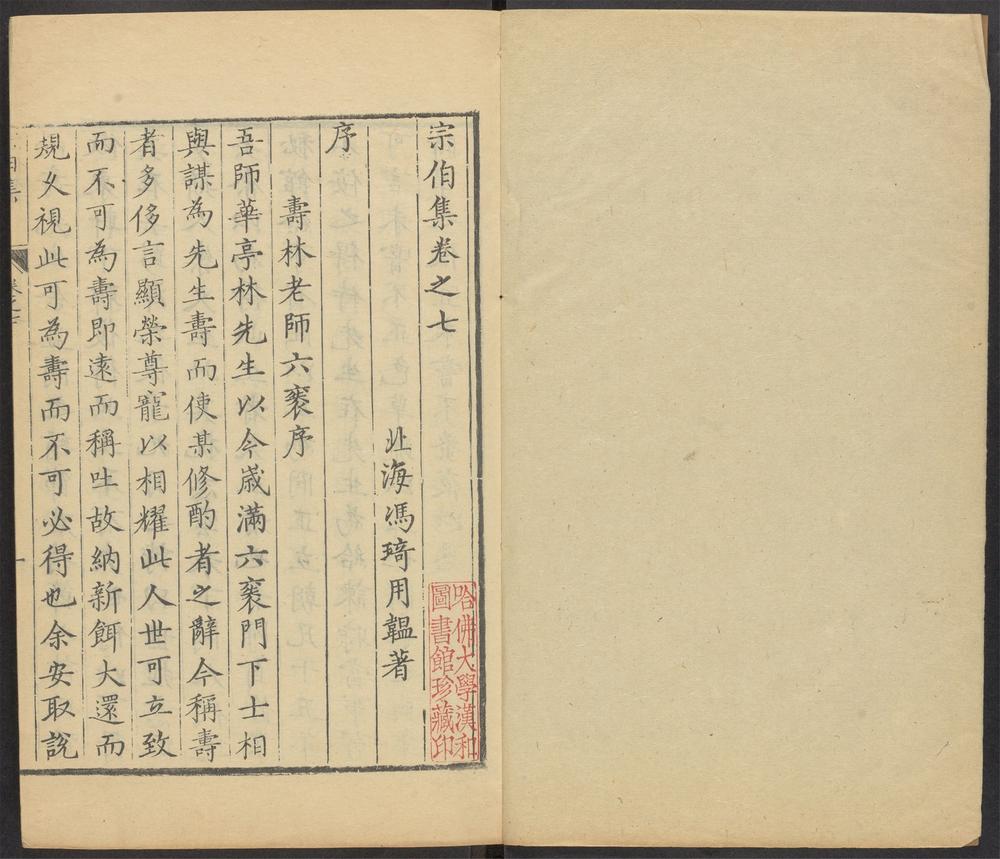 宗伯集卷之七
北海馮琦用韞著
序
壽林老師六袠序
吾師華亭林先生以今歲滿六袠門下士相
與謀為先生壽而使某修酌者之辭今稱壽
者多侈言顯榮尊寵以相耀此人世可立致
而不可為壽即遠而稱吐故納新餌大還而
規久視此可為壽而不可必得也余安取說
哈佛大學漢和
圖書館珍藏印